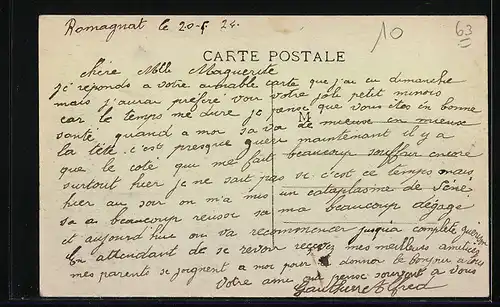 Romagnat le 20-5 24.
10
63
CARTE POSTALE
chère Mlle Maguerite
Je réponds a votre aimable carte que j'ai eu dimanche
mais j'aurai préféré voir votre joli petit minois
car le temps me dure je pense que vous êtes en bonne
santé quand a moi sa va de mieuse en mieuse
M
la tête c'est presque gueri maintenant il y a
que le coté qui me fait beaucoup souffair encore
surtout hier je ne sait pas si c'est ce temps mais
hier au soir on m'a mis un cataplasme de
sa a beaucoup reussi sa ma beaucoup dégagé
et aujourd'hui on va recommencer jusqu'a complète guerison
En attendant de se revoir recevez mes meilleurs amitiés
mes parents se joignent a moi pour donner le bonjour a tous
Votre ami qui pense souvent a vous
Alfred